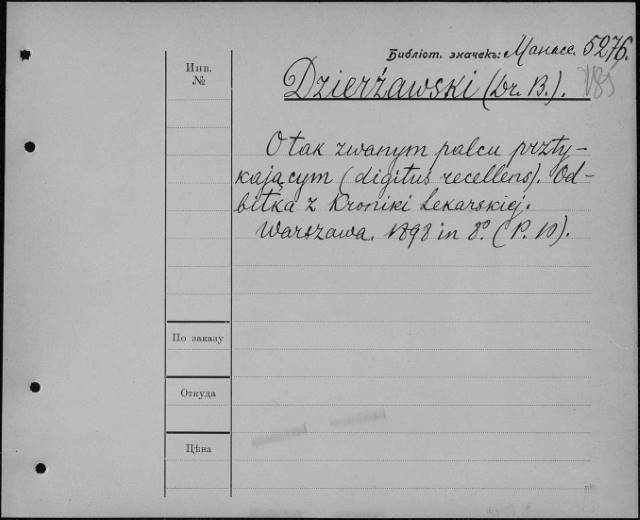 Библіот. значекъ: Манасс. 5276.
V85
Инв.
№
Dzierżawski (Dr. B.).
O tak zwanym palcu przty-
kającym (digitus recellens). Od-
bitka z Kroniki Lekarskiej.
Warszawa. 1898 in 8º. (P. 10).
По заказу
Откуда
Цѣна